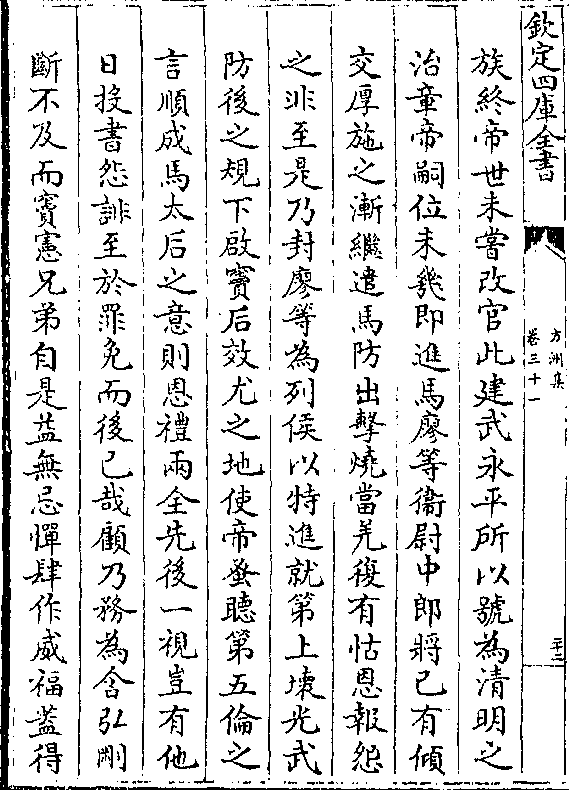 欽定四庫全書
方洲集
卷三十一
二十二
族終帝世未嘗改官此建武永平所以號為清明之
治章帝嗣位未幾即進馬廖等衞尉中郎將已有傾
交厚施之漸繼遣馬防出擊燒當羌復有怙恩報怨
之非至是乃封廖等為列侯以特進就第上壊光武
防後之規下啟竇后效尤之地使帝蚤聽第五倫之
言順成馬太后之意則恩禮兩全先後一視豈有他
日投書怨誹至於罪免而後已哉顧乃務為含弘剛
斷不及而竇憲兄弟自是益無忌憚肆作威福葢得